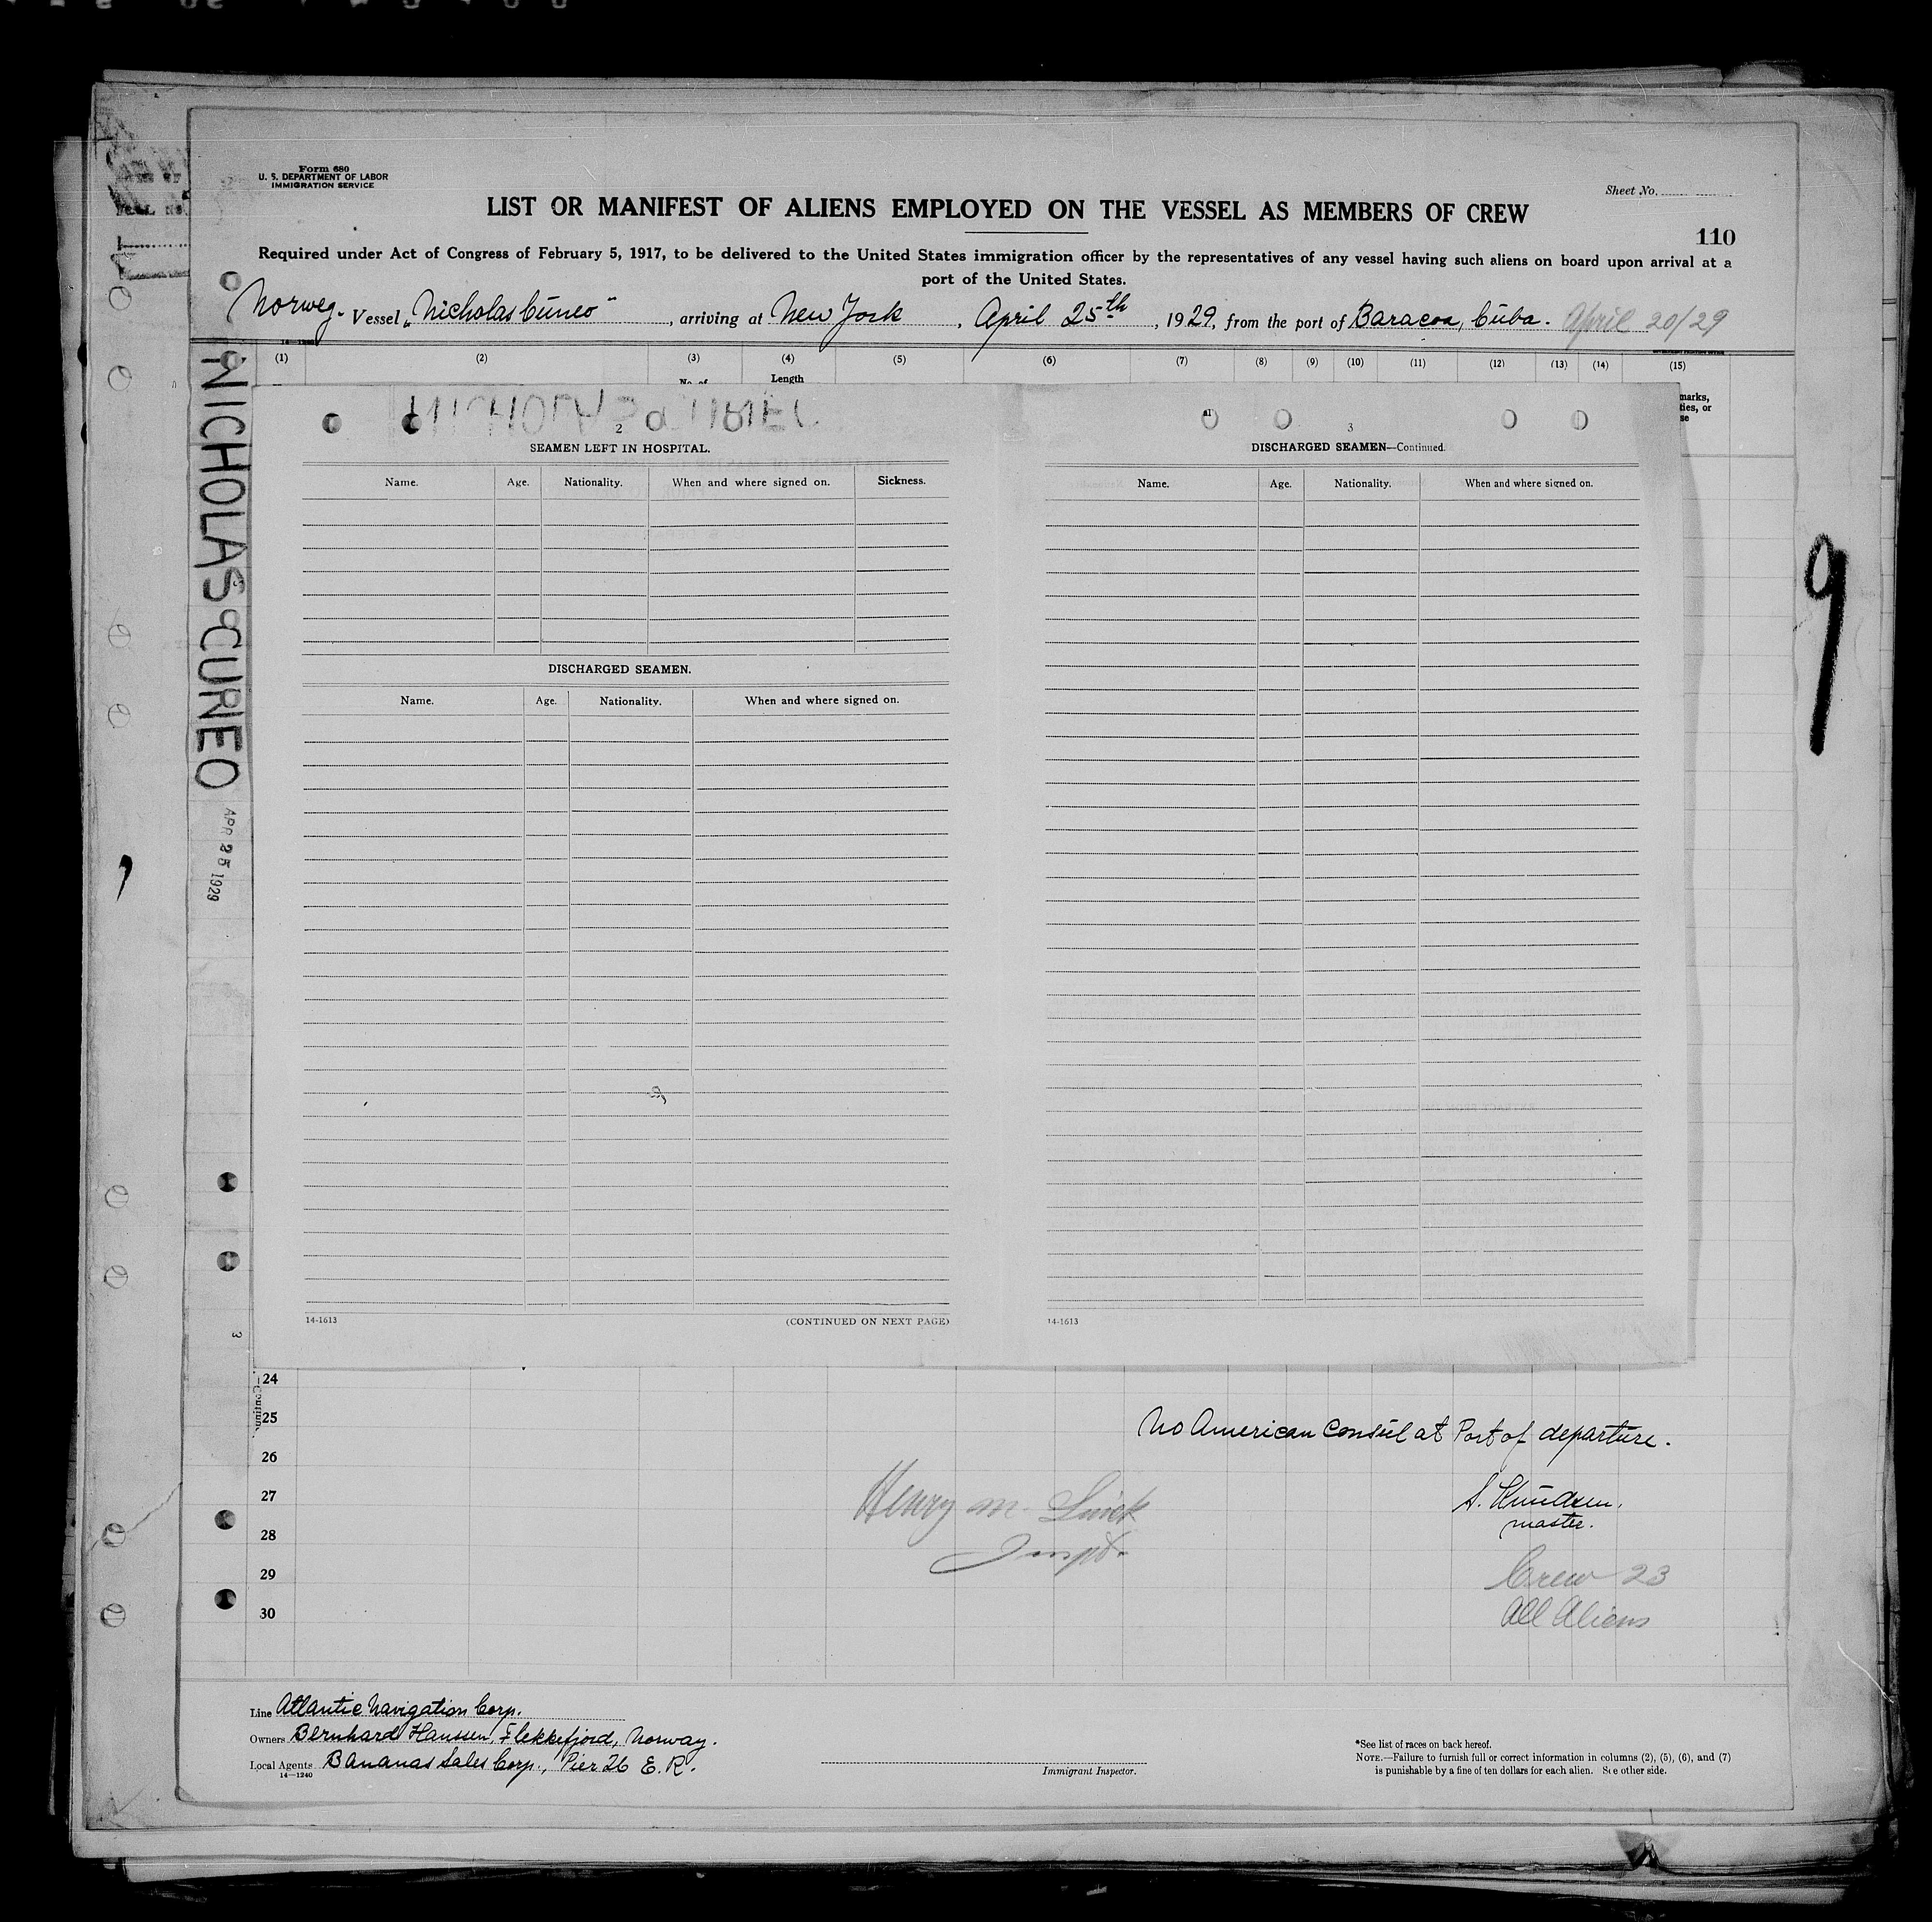 Form 680
U. S. DEPARTMENT OF LABOR
IMMIGRATION SERVICE
Sheet No.
LIST OR MANIFEST OF ALIENS EMPLOYED ON THE VESSEL AS MEMBERS OF CREW
110
Required under Act of Congress of February 5, 1917, to be delivered to the United States immigration officer by the representatives of any vessel having such aliens on board upon arrival at a
port of the United States.
Norweg. Vessel „Nicholas Cuneo", arriving at New York, April 25th, 1929, from the port of Baracoa, Cuba. April 20/29
(1) (2) (3) (4) (5) (6) (7) (8) (9) (10) (11) (12) (13) (14) (15)
No. of Length
NICHOLAS CUNEO
APR 25 1929
2
SEAMEN LEFT IN HOSPITAL.
Name. Age. Nationality. When and where signed on. Sickness.
DISCHARGED SEAMEN.
Name. Age. Nationality. When and where signed on.
14-1613 (CONTINUED ON NEXT PAGE)
3
DISCHARGED SEAMEN—Continued.
Name. Age. Nationality. When and where signed on.
14-1613
9
3
24
25
26
27
28
29
30
No American Consul at Port of departure.
Henry M.
Inspt.
S. Knudsen,
master.
Crew 23
All Aliens
Line Atlantic Navigation Corp.
Owners Bernhard Hanssen, Flekkefjord, Norway.
Local Agents Bananas Sales Corp., Pier 26 E. R.
14—1240
Immigrant Inspector.
*See list of races on back hereof.
NOTE.—Failure to furnish full or correct information in columns (2), (5), (6), and (7)
is punishable by a fine of ten dollars for each alien. See other side.